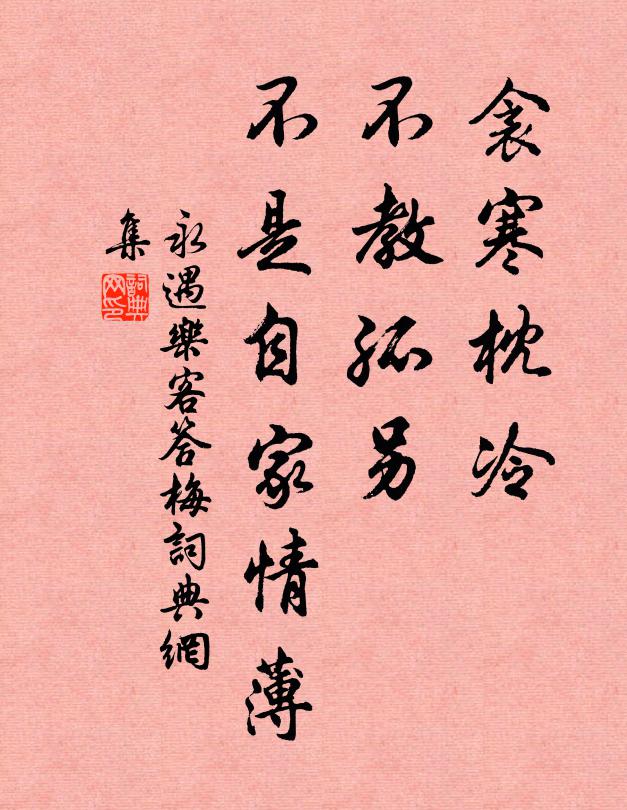 衾寒枕冷
不教孤另
不是自家情薄
永遇樂客答梅詞典網
集
詞典
网印